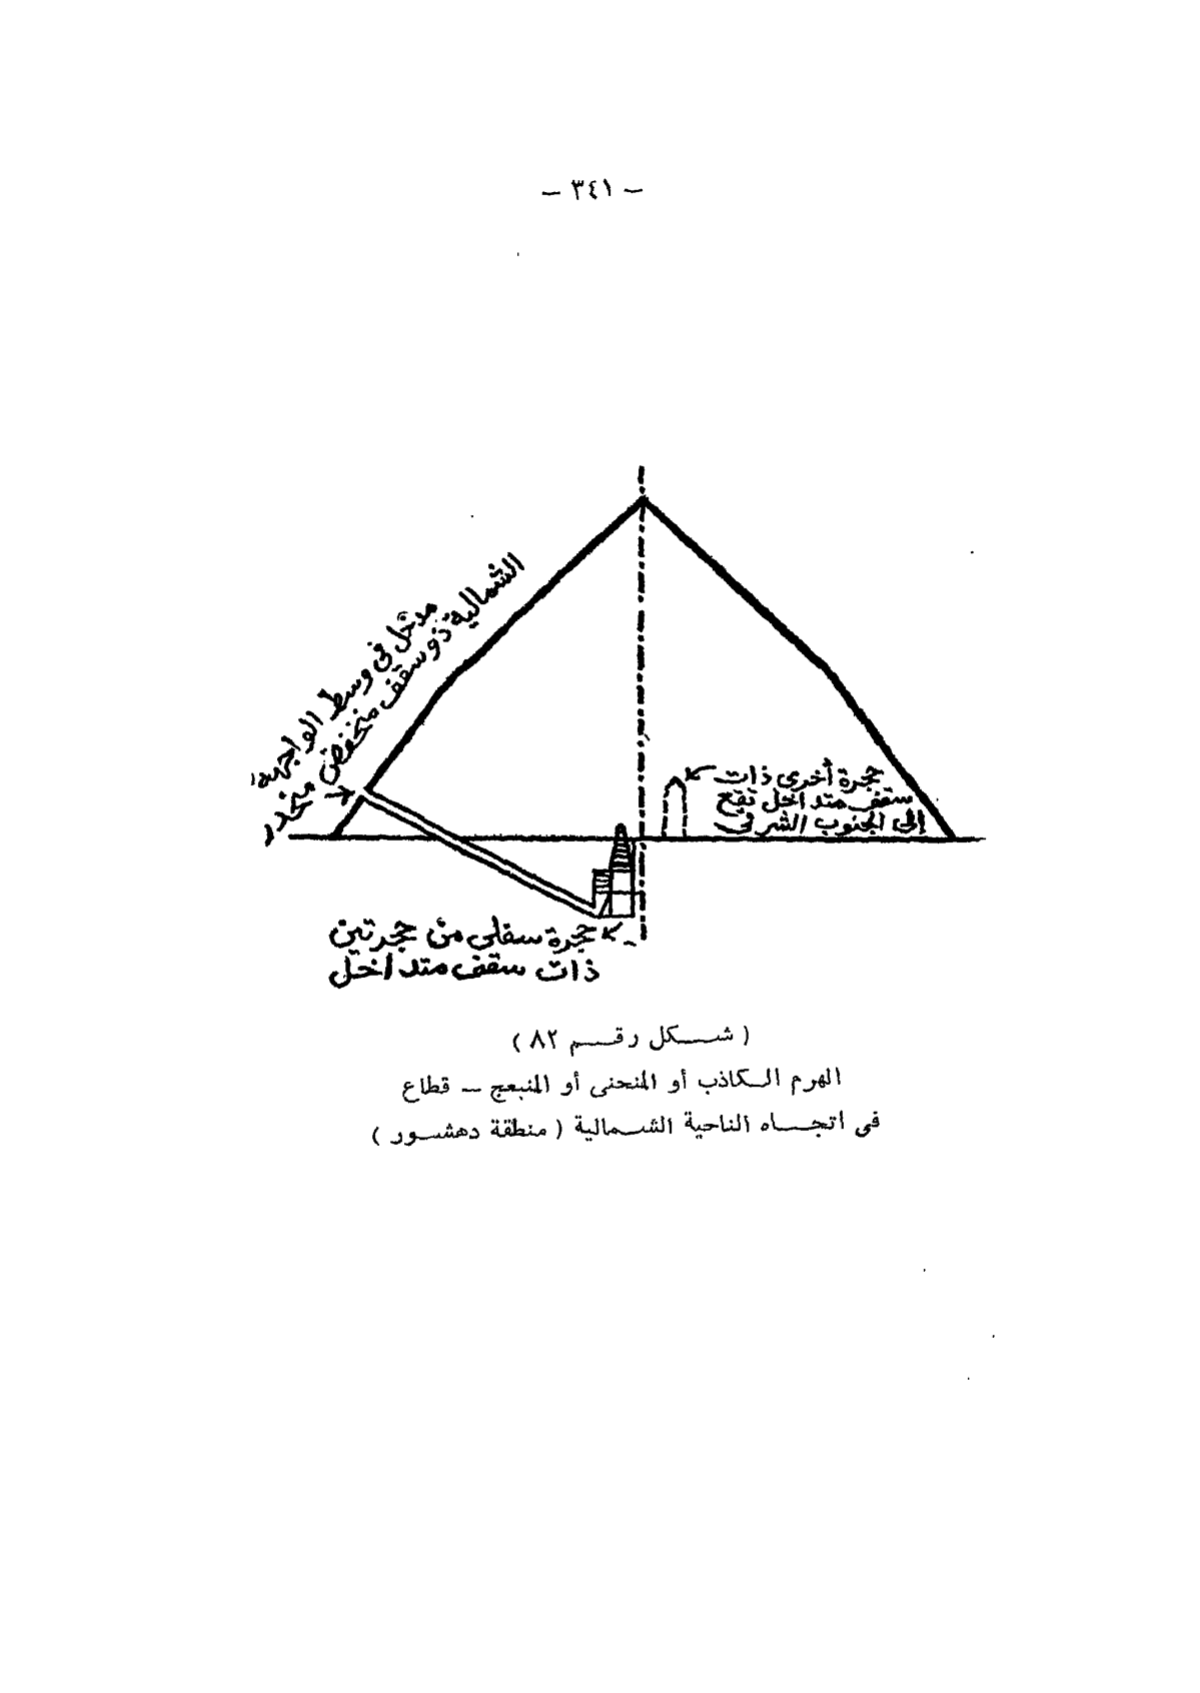 — ٣٤١ —
مدخل فى وسط الواجهة
الشمالية ذو سقف منخفض منحدر
حجرة أخرى ذات
سقف متداخل تقع
إلى الجنوب الشرقى
حجرة سفلى من حجرتين
ذات سقف متداخل
( شـــكل رقـــم ٨٢ )
الهرم الــكاذب أو المنحنى أو المنبعج — قطاع
فى اتجـــاه الناحية الشــمالية ( منطقة دهشــور )